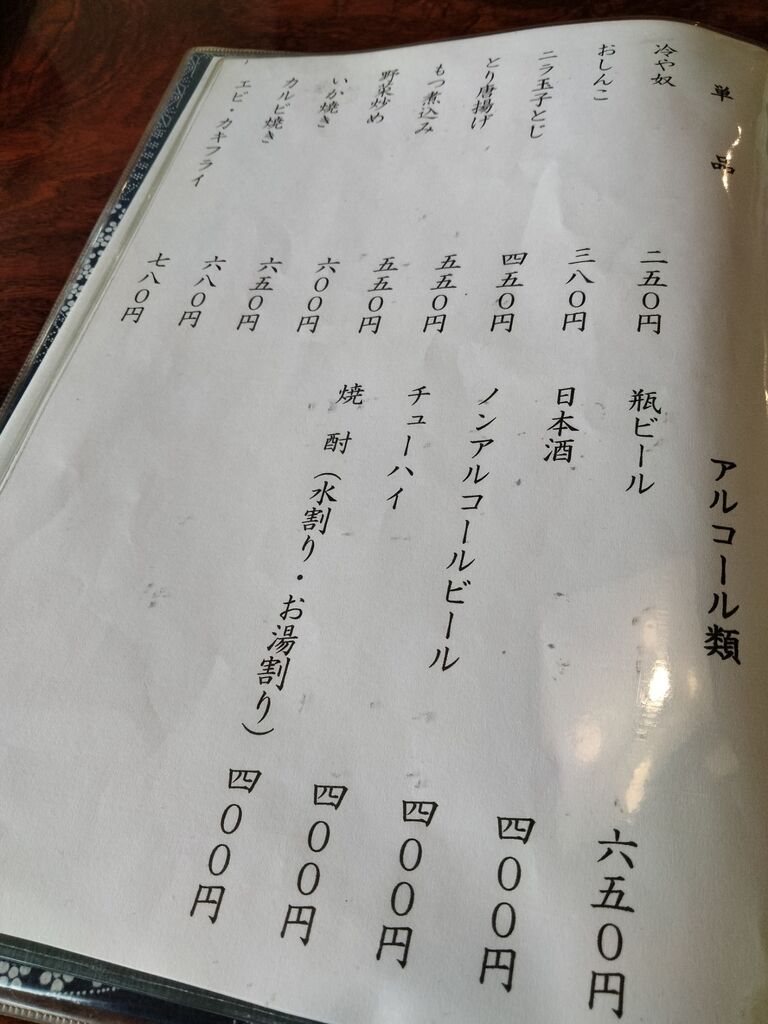 単品
冷や奴 二五〇円
おしんこ 三八〇円
ニラ玉子とじ 四五〇円
とり唐揚げ 五五〇円
もつ煮込み 五五〇円
野菜炒め 六〇〇円
いか焼き 六五〇円
カルビ焼き 六八〇円
エビ・カキフライ 七八〇円
アルコール類
瓶ビール 六五〇円
日本酒 四〇〇円
ノンアルコールビール 四〇〇円
チューハイ 四〇〇円
焼酎(水割り・お湯割り) 四〇〇円